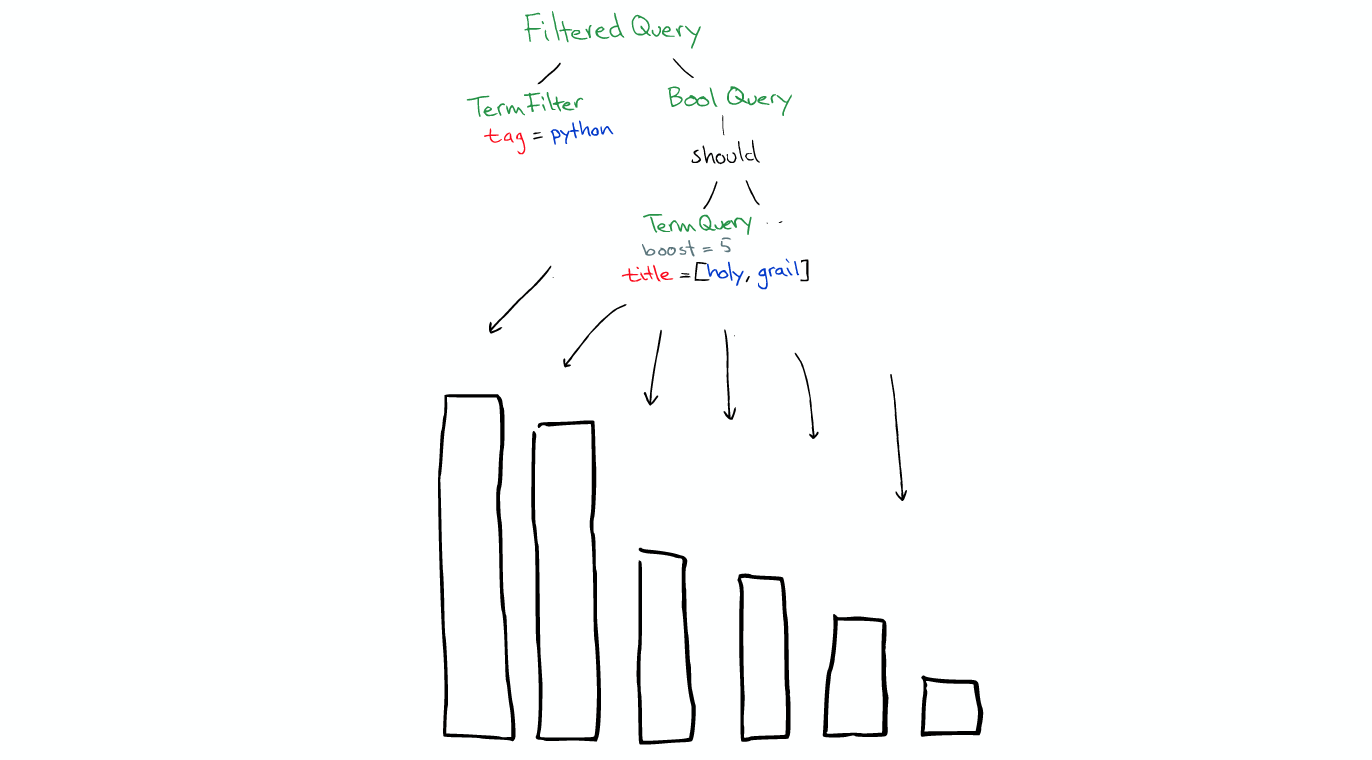 Filtered Query
TermFilter
tag = python
Bool Query
should
TermQuery ...
boost = 5
title = [holy, grail]